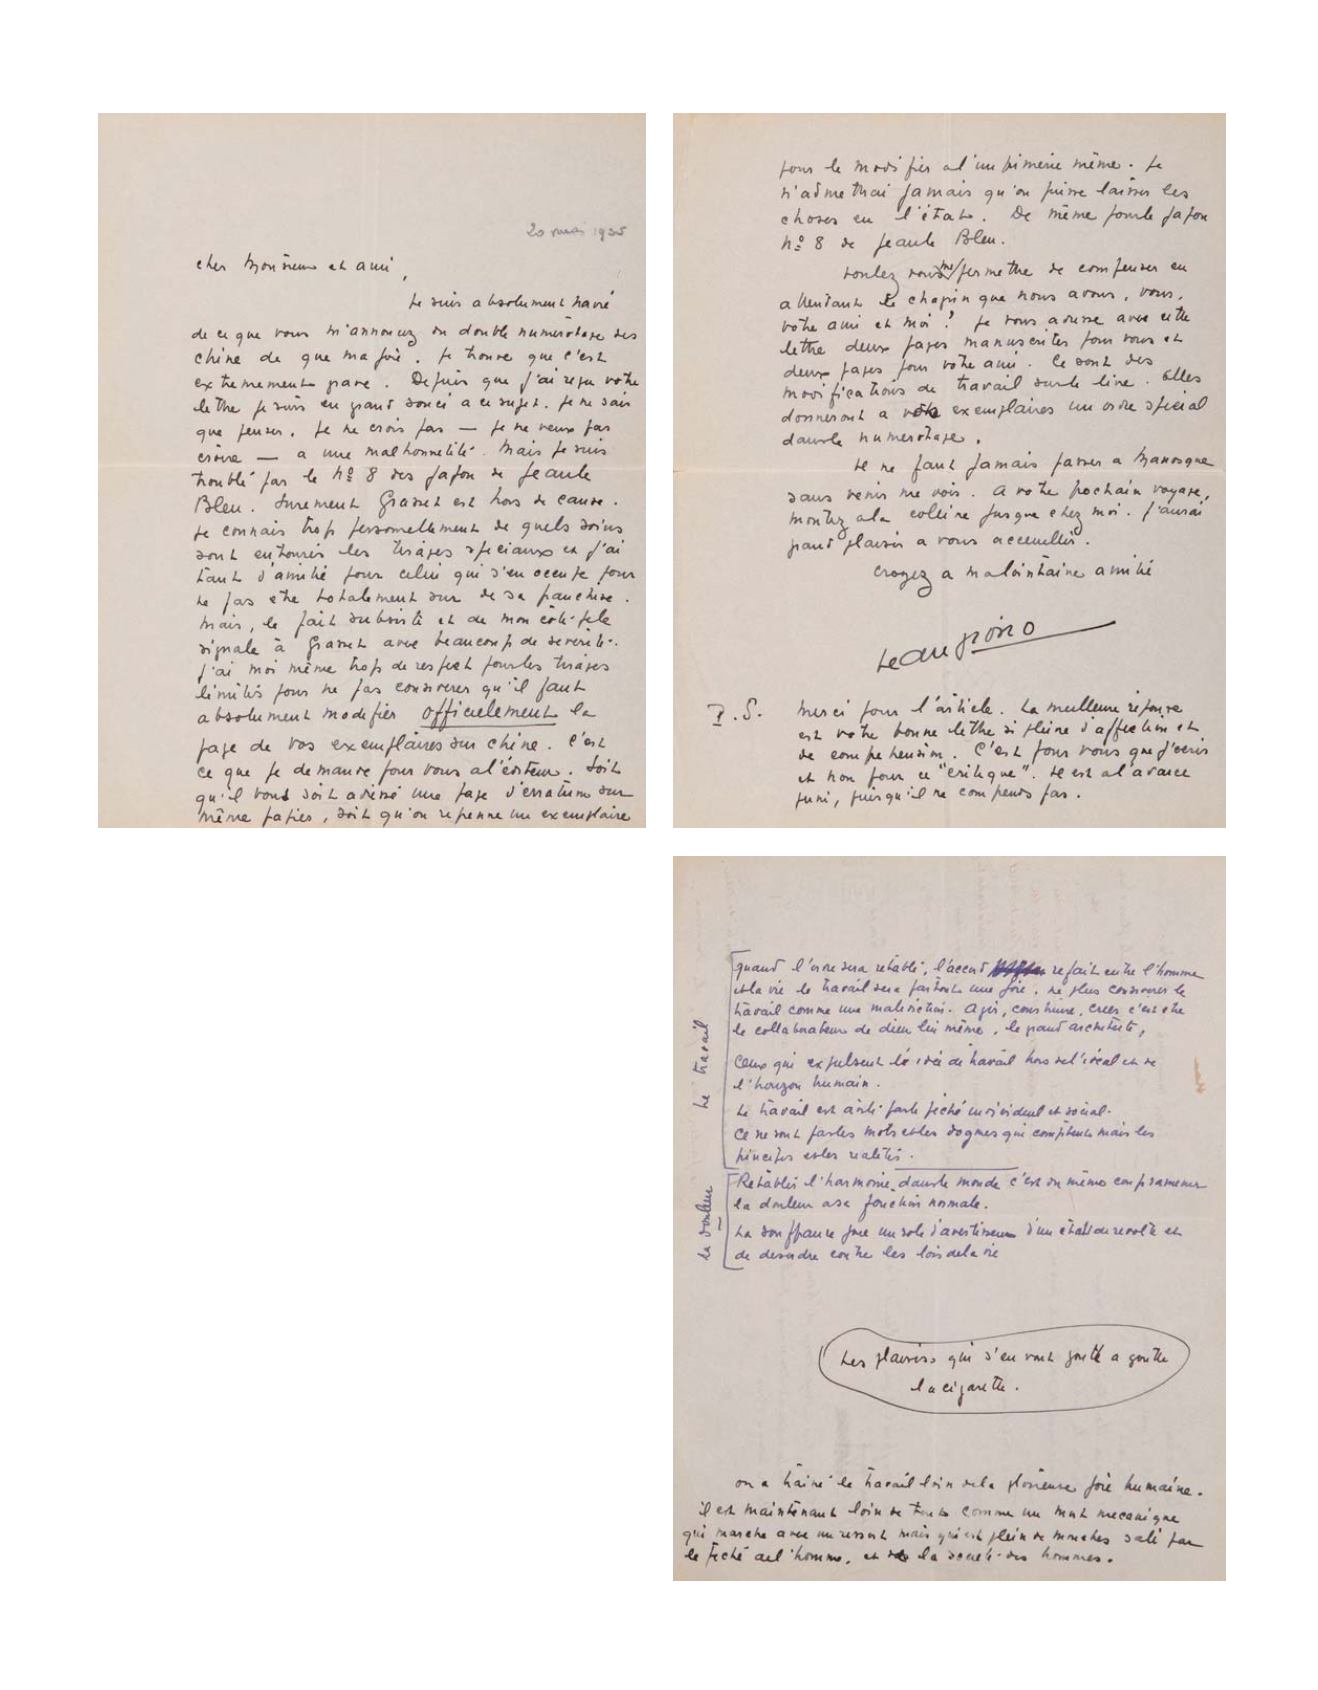 20 mai 1935
cher Monsieur et ami,
Je suis absolument navré
de ce que vous m'annoncez du double numérotage des
chine de que ma joie. Je trouve que c'est
extrêmement grave. Depuis que j'ai reçu votre
lettre je suis en grand souci a ce sujet. Je ne sais
que penser. Je ne crois pas — je ne veux pas
croire — a une malhonnêteté. Mais je suis
troublé par le Nº 8 des Japon de Jean le
Bleu. Surement Grasset est hors de cause.
Je connais trop personellement de quels soins
sont entourés les tirages speciaux et j'ai
tant d'amitié pour celui qui s'en occupe pour
ne pas etre totalement sur de sa franchise.
Mais, le fait subsiste et de mon côté je le
signale à Grasset avec beaucoup de severité.
J'ai moi même trop de respect pour les tirages
limités pour ne pas considerer qu'il faut
absolument modifier officielement la
page de vos exemplaires sur chine. C'est
ce que je demande pour vous a l'éditeur. Soit
qu'il vous soit adressé une page d'erratum sur
même papier, soit qu'on reprenne un exemplaire
pour le modifier a l'imprimerie même. Je
n'admettrai jamais qu'on puisse laisser les
choses en l'état. De même pour le Japon
Nº 8 de Jean le Bleu.
Voulez vous me permettre de compenser en
attendant le chagrin que nous avons, vous,
votre ami et moi? Je vous adresse avec cette
lettre deux pages manuscrites pour vous et
deux pages pour votre ami. Ce sont des
modifications de travail sur le livre. Elles
donneront a votre exemplaires un ordre special
dans le numerotage.
Il ne faut jamais passer a Manosque
sans venir me voir. A votre prochain voyage,
montez a la colline jusque chez moi. J'aurai
grand plaisir a vous accueillir.
Croyez a ma lointaine amitié
Jean Giono
P.S. Merci pour l'article. La meilleure réponse
est votre bonne lettre si pleine d'affection et
de comprehension. C'est pour vous que j'ecris
et non pour ce "critique". Il est a l'avance
puni, puisqu'il ne comprends pas.
Le travail
quand l'ordre sera rétabli, l'accord refait entre l'homme
et la vie le travail sera partout une joie. ne plus considerer le
travail comme une malediction. Agir, construire, creer c'est etre
le collaborateur de dieu lui même, le grand architecte,
Ceux qui expulsent le idée de travail hors de l'ideal et de
l'horizon humain.
Le travail est avili par le péché individuel et social.
Ce ne sont pas les mots et les dogmes qui comptent mais les
principes et les realités.
La douleur
Rétablir l'harmonie dans le monde c'est du même coup ramener
la douleur a sa fonction normale.
La souffrance joue un role d'avertisseur d'un état de revolte et
de desordre contre les lois de la vie
Les plaisirs qui s'en vont goutte a goutte
la cigarette.
on a trainé le travail loin de la glorieuse joie humaine.
il est maintenant loin de tout comme un mecanique
qui marche avec un ressort mais qui est plein de mouches sali par
le péché de l'homme, et de la société des hommes.